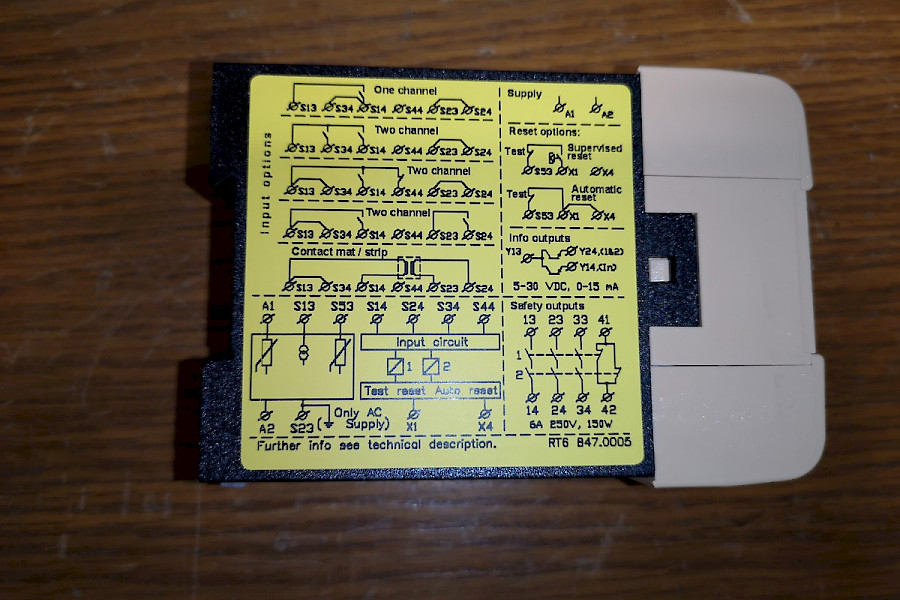 Input options
One channel
S13 S34 S14 S44 S23 S24
Two channel
S13 S34 S14 S44 S23 S24
Two channel
S13 S34 S14 S44 S23 S24
Two channel
S13 S34 S14 S44 S23 S24
Contact mat / strip
S13 S34 S14 S44 S23 S24
Supply
A1 A2
Reset options:
Test Supervised
reset
S53 X1 X4
Test Automatic
reset
S53 X1 X4
Info outputs
Y13 Y24,(1&2)
Y14,(In)
5-30 VDC, 0-15 mA
A1 S13 S53 S14 S24 S34 S44
Input circuit
1 2
Test reset Auto reset
A2 S23 Only AC
Supply) X1 X4
Safety outputs
13 23 33 41
1
2
14 24 34 42
6A 250V, 150W
Further info see technical description. RT6 847.0005